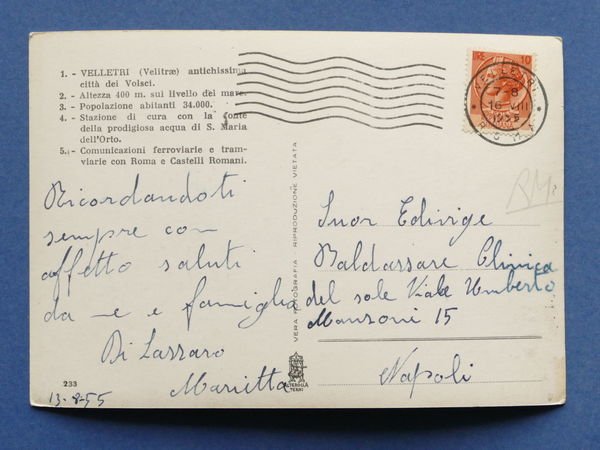 1. - VELLETRI (Velitræ) antichissima
città dei Volsci.
2. - Altezza 400 m. sul livello del mare.
3. - Popolazione abitanti 34.000.
4. - Stazione di cura con la fonte
della prodigiosa acqua di S. Maria
dell'Orto.
5. - Comunicazioni ferroviarie e tram-
viarie con Roma e Castelli Romani.
LIRE 10
VELLETRI
16 VIII
1955
ROMA
RM
Ricordandoti
sempre con
affetto saluti
da me e famiglia
Di Lazzaro
Marietta
233
13-8-55
VERA FOTOGRAFIA - RIPRODUZIONE VIETATA
ALTEROCCA
TERNI
Suor Edivige
Baldassare Clinica
del sole Viale Umberto
Manzoni 15
Napoli